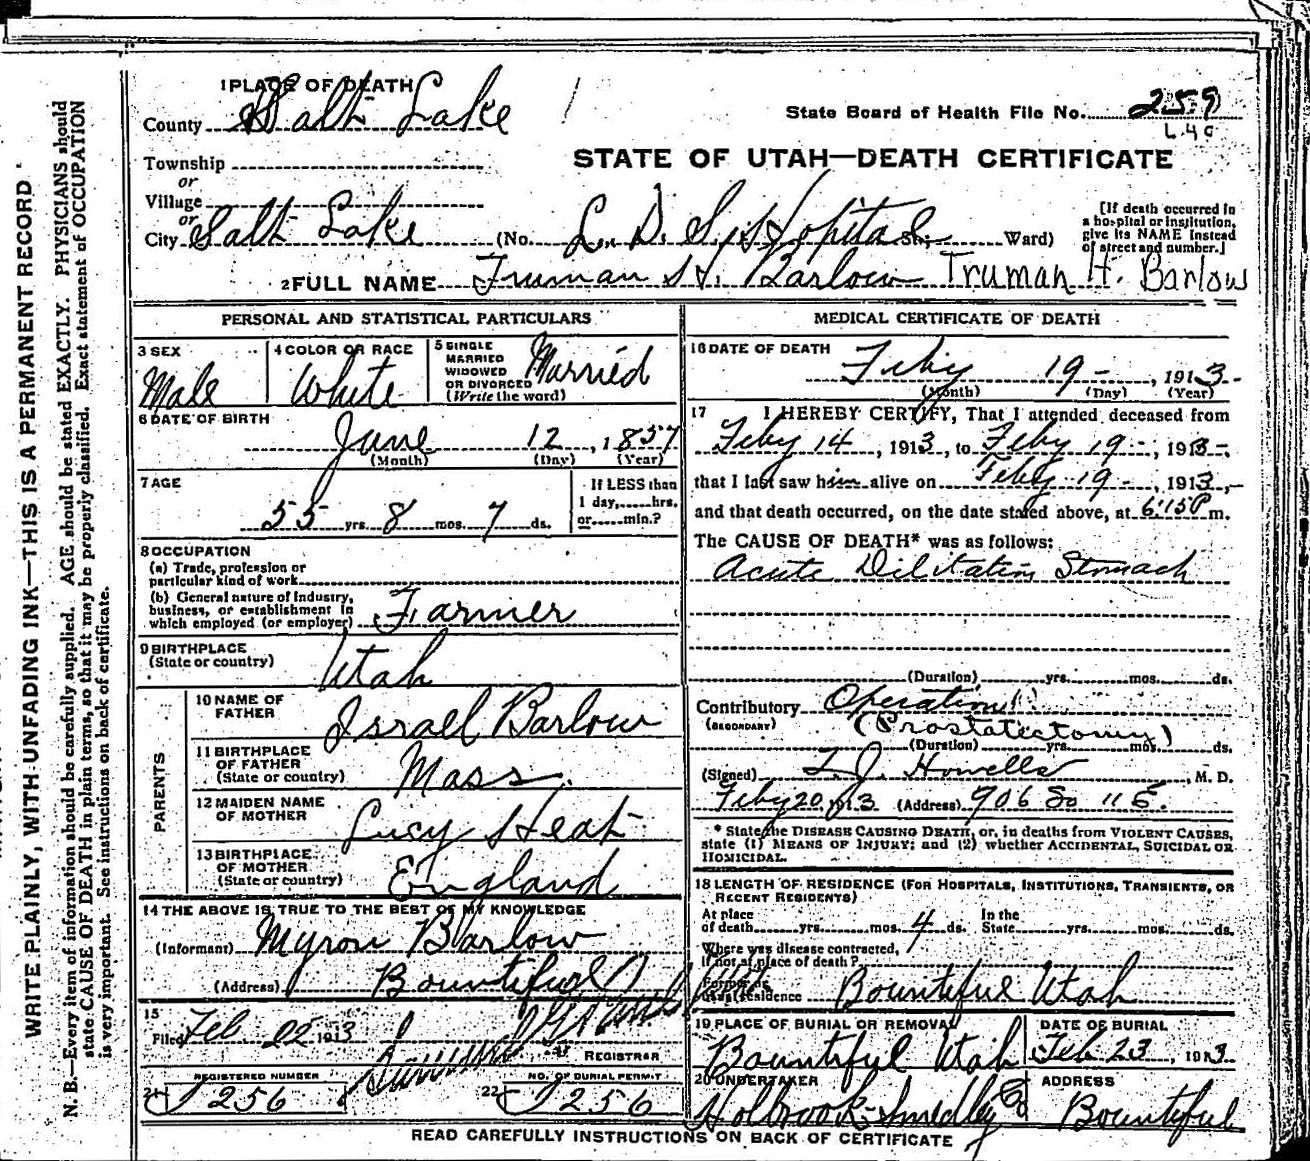 1 PLACE OF DEATH
County Salt Lake
State Board of Health File No. 259
L 40
Township
or
Village
or
City Salt Lake (No. L. D. S. Hopital St. Ward)
[If death occurred in a hospital or institution, give its NAME instead of street and number.]
STATE OF UTAH—DEATH CERTIFICATE
2 FULL NAME Truman H. Barlow Truman H. Barlow
PERSONAL AND STATISTICAL PARTICULARS
3 SEX Male
4 COLOR OR RACE White
5 SINGLE MARRIED WIDOWED OR DIVORCED (Write the word) Married
6 DATE OF BIRTH
June 12, 1857
(Month) (Day) (Year)
7 AGE
55 yrs. 8 mos. 7 ds.
If LESS than 1 day, hrs. or min.?
8 OCCUPATION
(a) Trade, profession or particular kind of work
(b) General nature of industry, business, or establishment in which employed (or employer) Farmer
9 BIRTHPLACE
(State or country) Utah
PARENTS
10 NAME OF FATHER Israel Barlow
11 BIRTHPLACE OF FATHER (State or country) Mass.
12 MAIDEN NAME OF MOTHER Lucy Heap
13 BIRTHPLACE OF MOTHER (State or country) England
14 THE ABOVE IS TRUE TO THE BEST OF MY KNOWLEDGE
(Informant) Myron Barlow
(Address) Bountiful
15
Filed Feb 1913
REGISTRAR
REGISTERED NUMBER
21 256
NO. OF BURIAL PERMIT
22 256
MEDICAL CERTIFICATE OF DEATH
16 DATE OF DEATH
Feby 19-, 1913-
(Month) (Day) (Year)
17 I HEREBY CERTIFY, That I attended deceased from
Feby 14, 1913, to Feby 19-, 1913-,
that I last saw him alive on Feby 19-, 1913,-
and that death occurred, on the date stated above, at 6:15P m.
The CAUSE OF DEATH* was as follows:
Acute Dilitation Stomach
(Duration) yrs. mos. ds.
Contributory Operation
(SECONDARY) (Prostatectomy)
(Duration) yrs. mos. ds.
(Signed) Howells, M. D.
Feby 20, 1913 (Address) 906 So 11 E.
* State the DISEASE CAUSING DEATH, or, in deaths from VIOLENT CAUSES,
state (1) MEANS OF INJURY; and (2) whether ACCIDENTAL, SUICIDAL OR
HOMICIDAL.
18 LENGTH OF RESIDENCE (FOR HOSPITALS, INSTITUTIONS, TRANSIENTS, OR
RECENT RESIDENTS)
At place of death yrs. mos. 4 ds. In the State yrs. mos. ds.
Where was disease contracted,
If not at place of death?
Former or usual residence Bountiful Utah
19 PLACE OF BURIAL OR REMOVAL
Bountiful Utah
DATE OF BURIAL
Feb 23, 1913.
20 UNDERTAKER
Holbrook-Smedley Co
ADDRESS
Bountiful
READ CAREFULLY INSTRUCTIONS ON BACK OF CERTIFICATE
WRITE PLAINLY, WITH UNFADING INK—THIS IS A PERMANENT RECORD
N. B.—Every item of information should be carefully supplied. AGE should be stated EXACTLY. PHYSICIANS should
state CAUSE OF DEATH in plain terms, so that it may be properly classified. Exact statement of OCCUPATION
is very important. See instructions on back of certificate.